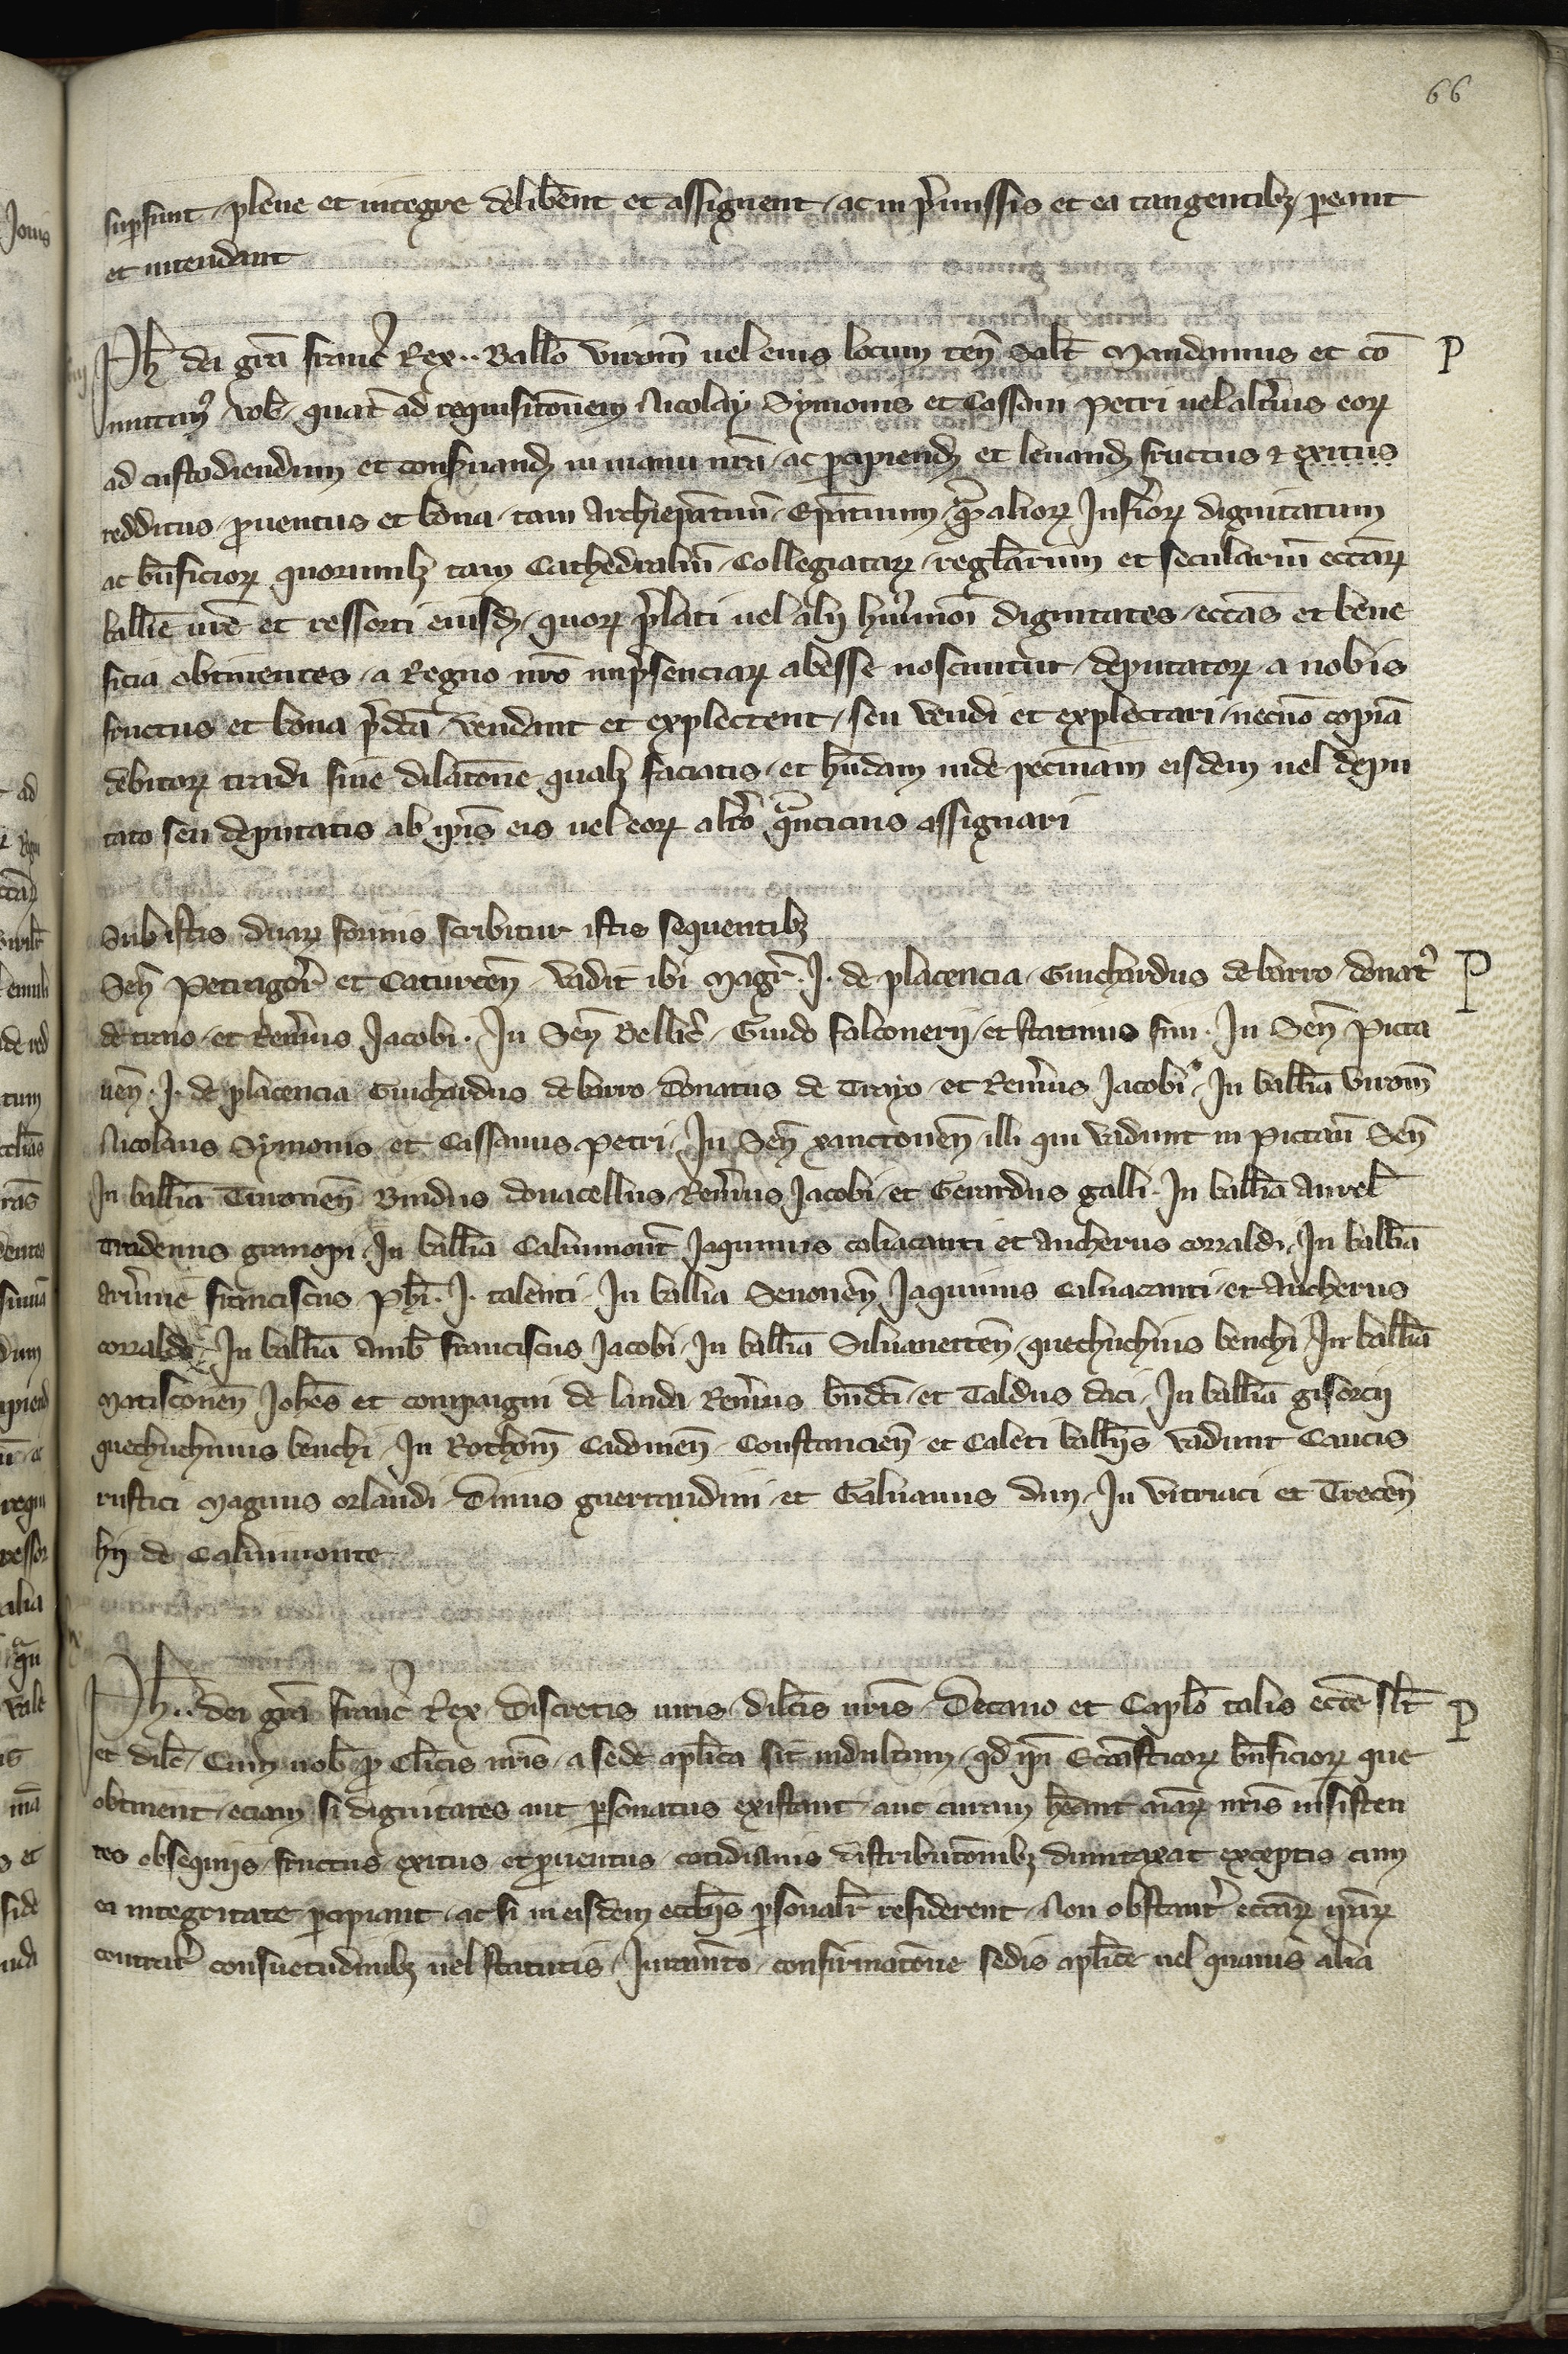 66
supsunt, plene et integre delibent et assignent, ac in pmissis et ea tangentibz, peant
et intendant
Ph dei gra franc Rex .. Ballo virom uel eius locum ten Salt Mandamus et co
mittim9 vob, quat ad requisitonem Nicolay Symonis et Cassani petri uel altius eorꝝ
ad custodiendum et conseruand in manu nra, ac pcipiend et leuand fructus et exitus
redditus, puentus et bona, tam Archiepatuum, Epatuum, qm aliorꝝ Inferiorꝝ dignitatum
ac bnficiorꝝ quorumlibz tam Cathedraliu, Collegiatarꝝ, reglarium et seculariu eccarꝝ
ballie ure et ressorti eiusd, quorꝝ plati uel alij humoi dignitates, eccas et bene
ficia obtinentes, a Regno nro impsenciarꝝ abesse noscuntur, deputatorꝝ a nobis
fructus et bona pdca vendant et explectent, seu vendi et explectari, necno copia
debitorꝝ tradi sine dilatone qualz faciatis, et hndam inde pecuniam eisdem uel depu
tato seu deputatis ab ipis eis uel eorꝝ altro quncicius assignari
Sub istis duarꝝ formis scribitur istis sequentibz
P
Sen Petragor et Caturcen, vadit ibi Magr. J. de placencia, Guichardus de barro, donat9
de trano, et Renius Jacobi. In Sen Bellic, Guido falconerij, et statinus sim. In Sen Picta
uen. J. de placencia Guichardus de barro Donatus de Trayo, et Renius Jacobi. In ballia virom
Nicolaus Symonis, et Cassanus petri, In Sen xanctonen, illi qui vadunt in pictau Sen
In ballia Turonen Bindus donacellus, Renius Jacobi, et Gerardus galli. In ballia aurel
Tadenus granopi, In ballia Caluimont Jaquinus caluacanti et ancherus corraldi, In ballia
aruinie franciscus phi. J. talenti, In ballia Senonen Jaquinus Caluacanti, et Ancherus
corraldi, In ballia Amb franciscus Jacobi, In ballia Siluanetten, quechuchius benchi In ballia
Matisconen Johes et compaigni de landa Renius bndci, et Taldus daci, In ballia gisorcij
quechuchinus benchi, In Rothom Cadomen, Constancien, et Caleti ballijs vadunt Caucis
rustici Magnus orlandi, Dinus guerrandini, et Galuanus dini, In vitriaci et Trecen
hij de Caluimonte
P
Ph.. dei gra franc Rex, Discretis uiris, dilcis nris, Decano et Caplo talis ecce slt
et dilc, Cum nob p Clicis nris, a sede aplica sit indultum, qd ipi Eccasticorꝝ bnficiorꝝ que
obtinent, eciam si dignitates aut psonatus existant, aut curam heant aiarꝝ nris insisten
tes obsequijs, fructus, exitus et puentus, cotidianis distributonibz dumtaxat exceptis cum
ea integritate pcipiant, ac si in eisdem ecclijs psonalr residerent, Non obstant eccarꝝ ipsarꝝ
contrar consuetudinibz uel statutis, Juramto, confirmatone sedis aplice uel quauis alia
P